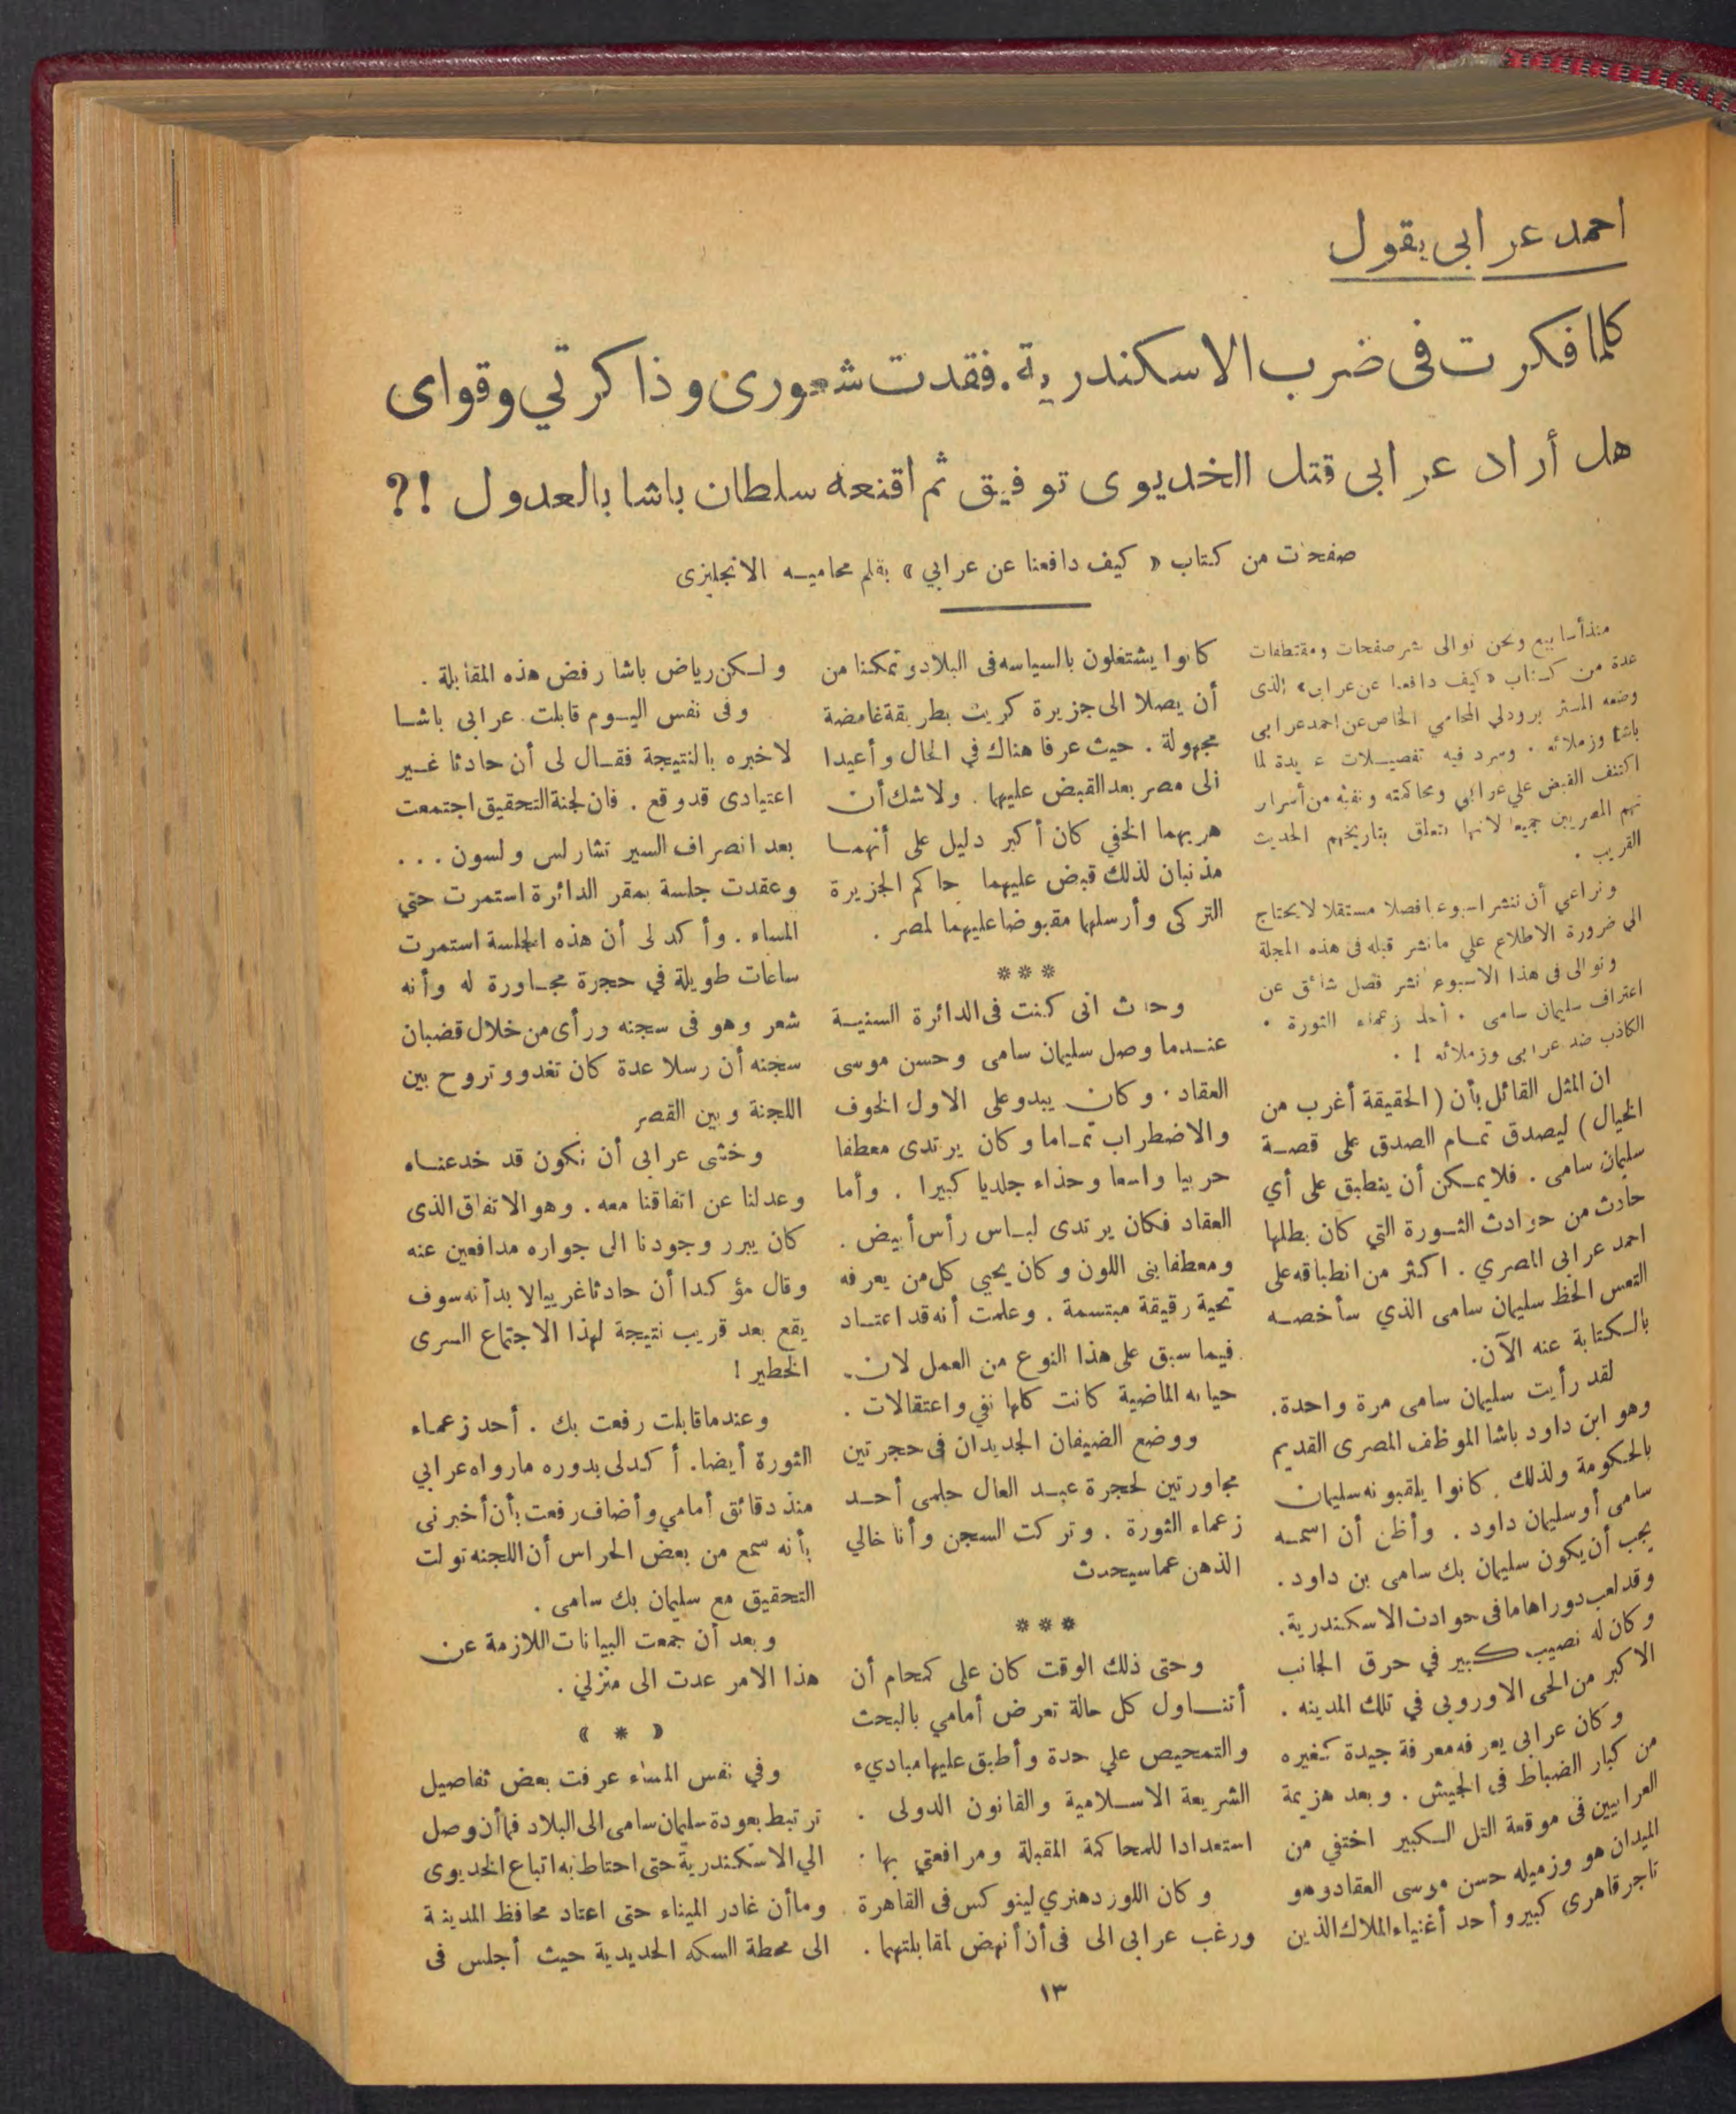 احمد عرابى يقول
كلما فكرت فى ضرب الاسكندرية. فقدت شعورى وذاكرتي وقواى
هل أراد عرابى قتل الخديوى توفيق ثم اقنعه سلطان باشا بالعدول !؟
صفحات من كتاب « كيف دافعنا عن عرابي » بقلم محاميه الانجليزى
منذ أسابيع ونحن نوالى نشر صفحات ومقتطفات
عدة من كتاب «كيف دافعنا عن عرابى» الذى
وضعه المستر برودلي المحامي الخاص عن احمد عرابى
باشا وزملائه . وسرد فيه تفصيلات عديدة لما
اكتنف القبض علي عرابي ومحاكمته ونفيه من أسرار
تهم المصريين جميعا لانها تتعلق بتاريخهم الحديث
القريب .
ونراعي أن ننشر اسبوعيا فصلا مستقلا لايحتاج
الى ضرورة الاطلاع علي مانشر قبله فى هذه المجلة
ونوالى فى هذا الاسبوع نشر فصل شائق عن
اعتراف سليمان سامى . أحد زعماء الثورة .
الكاذب ضد عرابى وزملائه ! .
ان المثل القائل بأن (الحقيقة أغرب من
الخيال) ليصدق تمام الصدق على قصة
سليمان سامى . فلا يمكن أن ينطبق على أي
حادث من حوادث الثورة التي كان بطلها
احمد عرابى المصري . اكثر من انطباقه على
التعس الحظ سليمان سامى الذي سأخصه
بالكتابة عنه الآن.
لقد رأيت سليمان سامى مرة واحدة.
وهو ابن داود باشا الموظف المصرى القديم
بالحكومة ولذلك . كانوا يلقبونه سليمان
سامى أو سليمان داود . وأظن أن اسمه
يجب أن يكون سليمان بك سامى بن داود.
وقد لعب دورا هاما فى حوادث الاسكندرية.
وكان له نصيب كبير في حرق الجانب
الاكبر من الحى الاوروبى في تلك المدينه .
وكان عرابى يعرفه معرفة جيدة كغيره
من كبار الضباط فى الجيش . وبعد هزيمة
العرابيين فى موقعة التل الكبير اختفي من
الميدان هو وزميله حسن موسى العقاد وهو
تاجر قاهرى كبير وأحد أغنياء الملاك الذين
كانوا يشتغلون بالسياسه فى البلاد وتمكنا من
أن يصلا الى جزيرة كريت بطريقة غامضة
مجهولة . حيث عرفا هناك في الحال وأعيدا
الى مصر بعد القبض عليهما . ولا شك أن
هربهما الخفي كان أكبر دليل على أنهما
مذنبان لذلك قبض عليهما حاكم الجزيرة
التركى وأرسلهما مقبوضا عليهما لمصر .
***
وحدث انى كنت فى الدائرة السنية
عندما وصل سليمان سامى وحسن موسى
العقاد . وكان يبدو على الاول الخوف
والاضطراب تماما وكان يرتدى معطفا
حربيا واسعا وحذاء جلديا كبيرا . وأما
العقاد فكان يرتدى لباس رأس أبيض .
ومعطفا بنى اللون وكان يحيي كل من يعرفه
تحية رقيقة مبتسمة . وعلمت أنه قد اعتاد
فيما سبق على هذا النوع من العمل لان
حياته الماضية كانت كلها نفي واعتقالات .
ووضع الضيفان الجديدان فى حجرتين
مجاورتين لحجرة عبد العال حلمى أحد
زعماء الثورة . وتركت السجن وأنا خالي
الذهن عما سيحدث
***
وحتى ذلك الوقت كان على كمحام أن
أتناول كل حالة تعرض أمامي بالبحث
والتمحيص علي حدة وأطبق عليها مباديء
الشريعة الاسلامية والقانون الدولى .
استعدادا للمحاكمة المقبلة ومرافعتي بها .
وكان اللورد هنري لينوكس فى القاهرة
ورغب عرابى الى فى أن أنهض لمقابلتهما .
ولكن رياض باشا رفض هذه المقابلة .
وفى نفس اليوم قابلت عرابى باشا
لاخبره بالنتيجة فقال لى أن حادثا غير
اعتيادى قد وقع . فان لجنة التحقيق اجتمعت
بعد انصراف السير تشارلس ولسون ...
وعقدت جلسة بمقر الدائرة استمرت حتي
المساء . وأكد لى أن هذه الجلسة استمرت
ساعات طويلة في حجرة مجاورة له وأنه
شعر وهو فى سجنه ورأى من خلال قضبان
سجنه أن رسلا عدة كان تغدو وتروح بين
اللجنة وبين القصر
وخشى عرابى أن نكون قد خدعناه
وعدلنا عن اتفاقنا معه . وهو الاتفاق الذى
كان يبرر وجودنا الى جواره مدافعين عنه
وقال مؤكدا أن حادثا غريبا لا بد أنه سوف
يقع بعد قريب نتيجة لهذا الاجتماع السرى
الخطير !
وعندما قابلت رفعت بك . أحد زعماء
الثورة أيضا. أكد لى بدوره مارواه عرابي
منذ دقائق أمامي وأضاف رفعت بأن أخبرنى
بأنه سمع من بعض الحراس أن اللجنه تولت
التحقيق مع سليمان بك سامى .
وبعد أن جمعت البيانات اللازمة عن
هذا الامر عدت الى منزلي .
« * »
وفي نفس المساء عرفت بعض تفاصيل
ترتبط بعودة سليمان سامى الى البلاد فما أن وصل
الي الاسكندرية حتى احتاط به اتباع الخديوى
وما أن غادر الميناء حتى اعتاد محافظ المدينة
الى محطة السكه الحديدية حيث أجلس فى
١٣